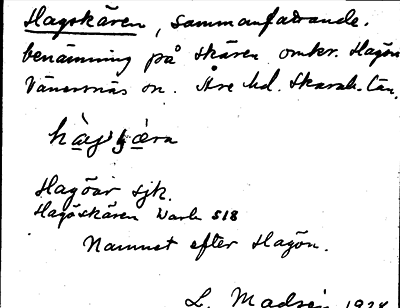 Hagskären, sammanfattande.
benämning på skären omkr. Hagön
Vänersnäs sn. Åse hd. Skarab. län.
Hagöar sjk.
Hagöskären Warb S18
Namnet efter Hagön.
L. Madsén 1924